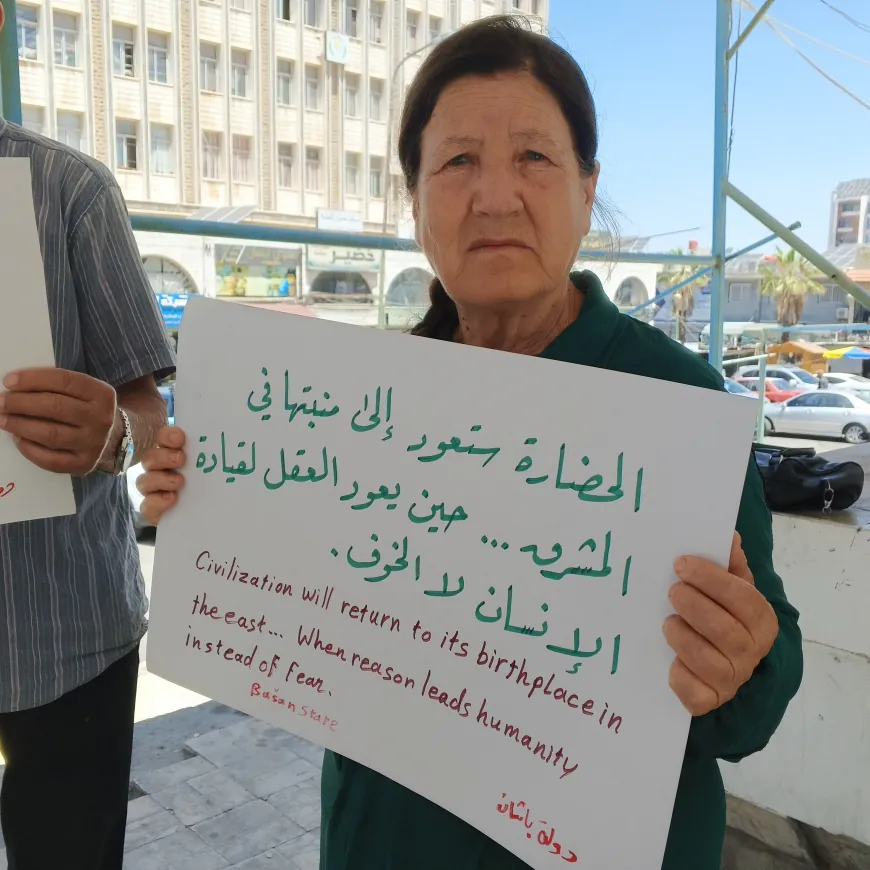 خضير
الحضارة ستعود إلى منبتها في
المشرق... حين يعود العقل لقيادة
الإنسان لا الخوف.
Civilization will return to its birthplace in
the east... When reason leads humanity
instead of fear.
Bašan State
دولة باشان